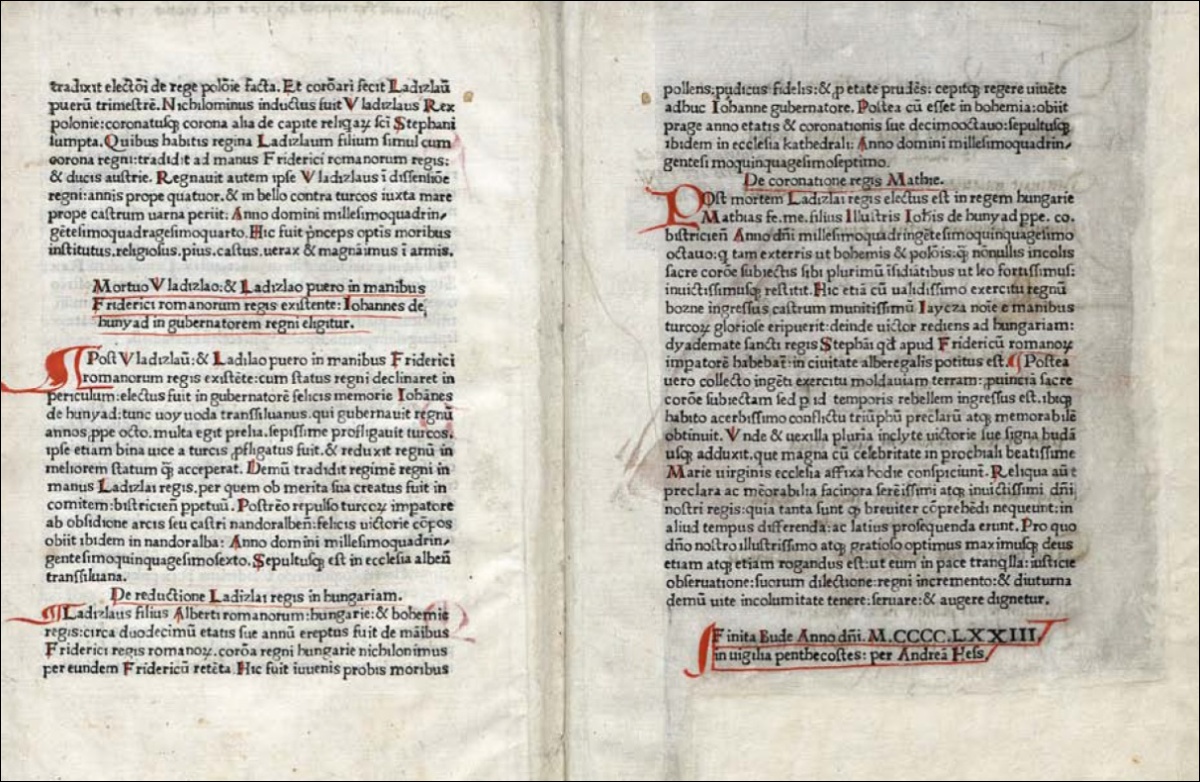 tradixit electōi de rege polōie facta. Et corōari fecit Ladizlaū
puerū trimestrē. Nichilominus inductus fuit Vladizlaus Rex
polonie: coronatusqꝫ corona alia de capite reliqaꝝ sci Stephani
sumpta. Quibus habitis regina Ladizlaum filium simul cum
corona regni: tradidit ad manus Friderici romanorum regis:
& ducis austrie. Regnauit autem ipse Vladizlaus ī dissensiōe
regni: annis prope quatuor. & in bello contra turcos iuxta mare
prope castrum uarna periit: Anno domini millesimoquadrin/
gētesimoquadragesimoquarto. Hic fuit prīceps optīs moribus
institutus, religiosus, pius, castus, uerax & magnāimus ī armis.
Mortuo Vladizlao: & Ladizlao puero in manibus
Friderici romanorum regis existente: Iohannes de
hunyad in gubernatorem regni eligitur.
Post Vladizlaū: & Ladilao puero in manibus Friderici
romanorum regis existēte: cum status regni declinaret in
periculum: electus fuit in gubernatorē felicis memorie Iohānes
de hunyad: tunc uoyuoda transsiluanus. qui gubernauit regnū
annos ꝓpe octo. multa egit prelia. sepissime profligauit turcos.
ipse etiam bina uice a turcis ꝓfligatus fuit. & reduxit regnū in
meliorem statum q̄ acceperat. Demū tradidit regimē regni in
manus Ladizlai regis. per quem ob merita sua creatus fuit in
comitem: bistricien̄ ppetuū. Postrēo repulso turcoꝝ impatore
ab obsidione arcis seu castri nandoralben̄: felicis uictorie cōpos
obiit ibidem in nandoralba: Anno domini millesimoquadrin/
gentesimoquinquagesimosexto. Sepultusqꝫ est in ecclesia alben̄
transsiluana.
De reductione Ladizlai regis in hungariam.
Ladizlaus filius Alberti romanorum: hungarie: & bohemie
regis: circa duodecimū etatis sue annū ereptus fuit de māibus
Friderici regis romanoꝝ. corōa regni hungarie nichilonimus
per eundem Fridericū retēta. Hic fuit iuuenis probis moribus
pollens: pudicus fidelis: & ꝓ etate prudēs: cepitqꝫ regere uiuēte
adhuc Iohanne gubernatore. Postea cū esset in bohemia: obiit
prage anno etatis & coronationis sue decimooctauo: sepultusqꝫ
ibidem in ecclesia kathedrali: Anno domini millesimoquadrin/
gentesi moquinquagesimoseptimo.
De coronatione regis Mathie.
Post mortem Ladizlai regis electus est in regem hungarie
Mathias fe. me. filius Illustris Iohīs de hunyad ppe. co.
bistricien̄ Anno dn̄i millesimoquadringētesimoquinquagesimo
octauo: q tam exterris ut bohemis & polōis: q̄ nonullis incolis
sacre corōe subiectis sibi plurimū īsidiātibus ut leo fortissimus:
inuictissimusqꝫ restitit. Hic etiā cū ualidissimo exercitu regnū
bozne ingressus castrum munitissimū Iaycza noīe e manibus
turcoꝝ gloriose eripuerit: deinde uictor rediens ad hungariam:
dyademate sancti regis Stephāi qd apud Fridericū romanoꝝ
impatorē habebat̄: in ciuitate alberegalis potitus est. Postea
uero collecto ingēti exercitu moldauiam terram: ꝓuinciā sacre
corōe subiectam sed p id temporis rebellem ingressus est. ibiqꝫ
habito acerbissimo conflictu triūphū preclarū atqꝫ memorabilē
obtinuit. Vnde & uexilla pluria inclyte uictorie sue signa budā
usqꝫ adduxit. que magna cū celebritate in prochiali beatissime
Marie uirginis ecclesia affixa hodie conspiciunt̄. Reliqua aūt
preclara ac mēorabilia facinora serēissimi atqꝫ inuictissimi dn̄i
nostri regis: quia tanta sunt qꝫ breuiter cōprehēdi nequeunt: in
aliud tempus differenda: ac latius prosequenda erunt. Pro quo
dn̄o nostro illustrissimo atqꝫ gratioso optimus maximusqꝫ deus
etiam atqꝫ etiam rogandus est: ut eum in pace tranq̄lla: iusticie
obseruatione: suorum dilectione: regni incremento: & diuturna
demū uite incolumitate tenere: seruare: & augere dignetur.
Finita Bude Anno dn̄i. M.CCCC.LXXIII.
in uigilia penthecostes: per Andreā Hess.